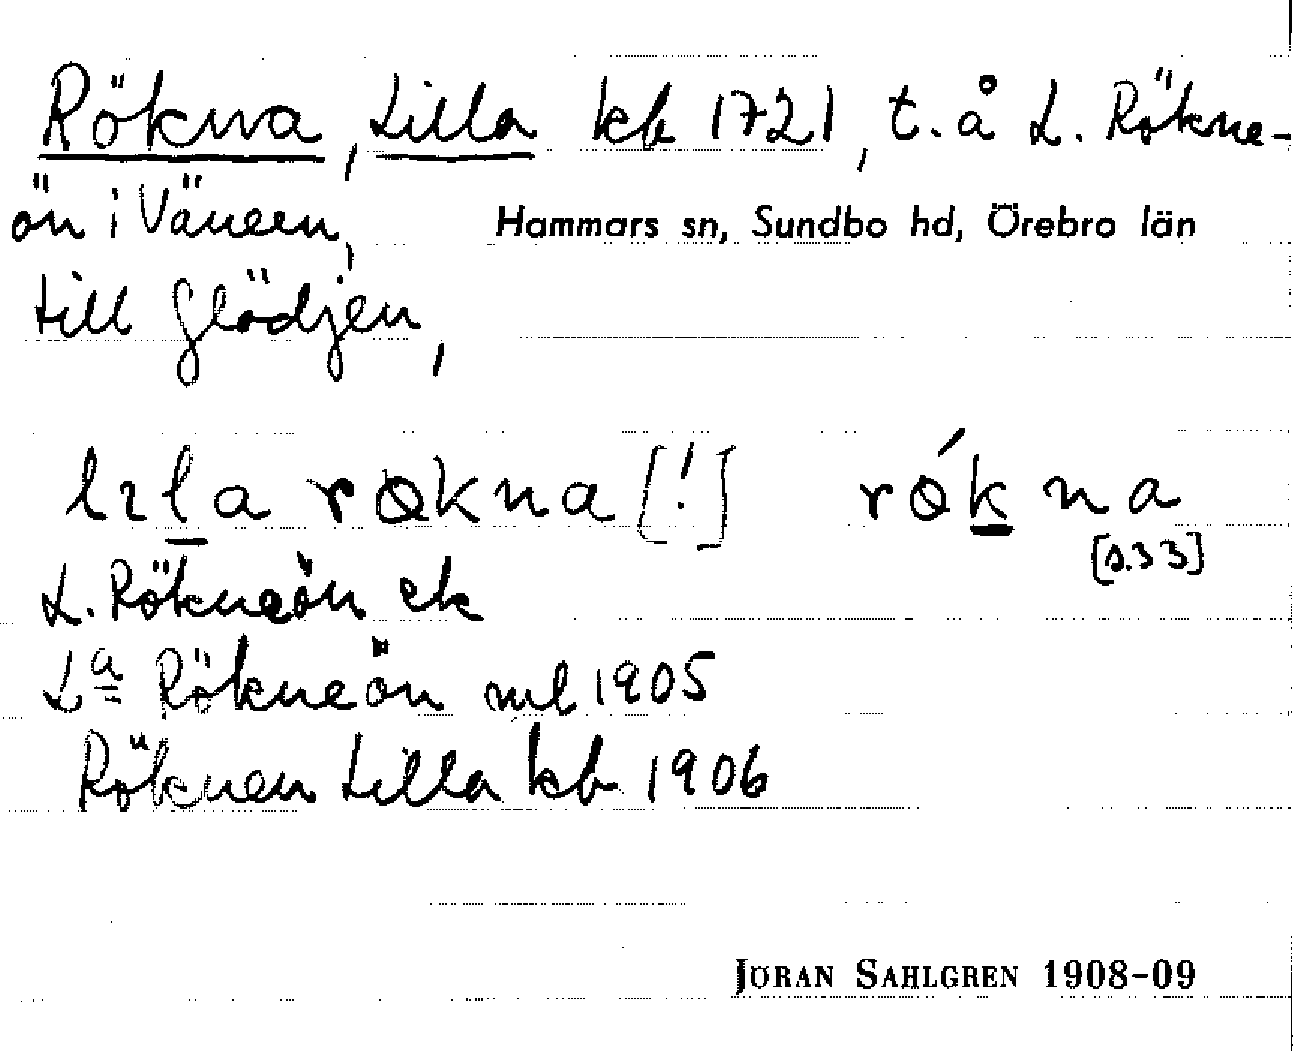 Rökna, Lilla kb 1721, t. å L. Rökne-
ön i Vänern,
Hammars sn, Sundbo hd, Örebro län
till Glädjen,
lɩla røkna [!] rǿkna
[s.33]
L. Rökneön ek
La Rökneön ml 1905
Röknen Lilla kb 1906
JÖRAN SAHLGREN 1908-09